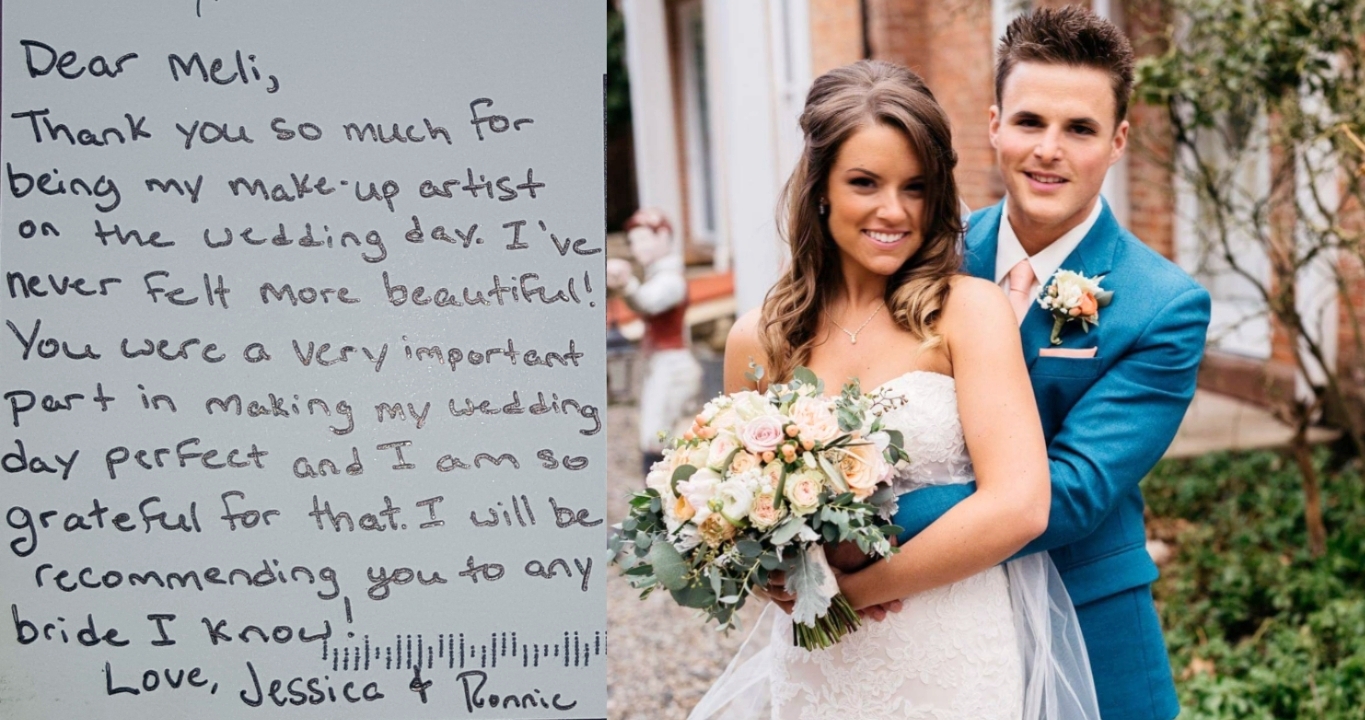 Dear Meli,
Thank you so much for
being my make-up artist
on the wedding day. I've
never felt more beautiful!
You were a very important
part in making my wedding
day perfect and I am so
grateful for that. I will be
recommending you to any
bride I know!
Love, Jessica & Ronnie